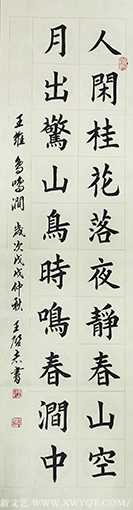 人閑桂花落夜靜春山空
月出驚山鳥時鳴春澗中
王維鳥鳴澗歲次戊戌仲秋王啓志書
新文艺 WWW.XWYOT.COM